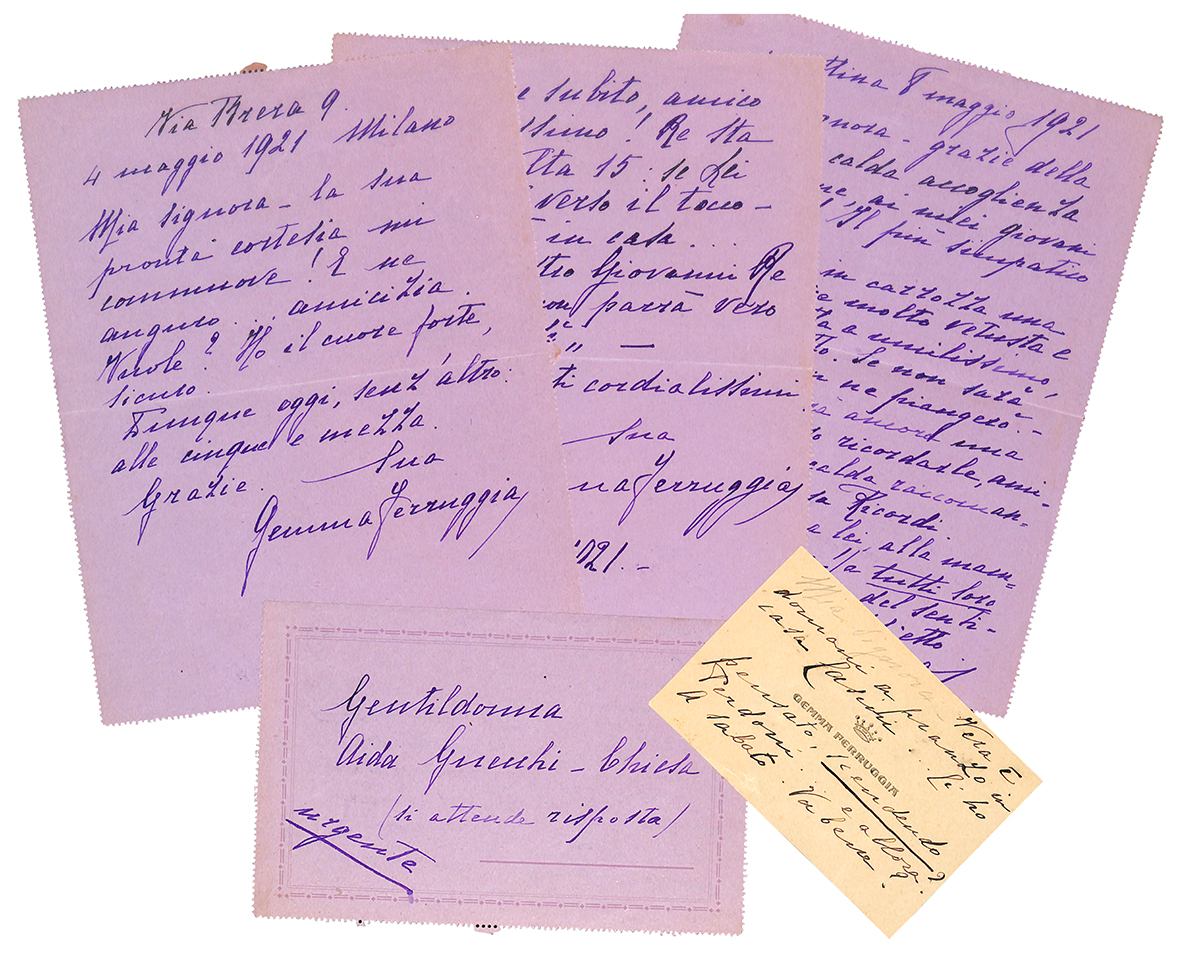 Via Brera 9.
4 maggio 1921 Milano
Mia signora - la sua
pronta cortesia mi
commuove! E ne
auguro... amicizia.
Vuole? Ho il cuore forte,
sicuro.
Dunque oggi, senz'altro:
alle cinque e mezza.
Grazie. Sua
Gemma Ferruggia
e subito, amico
ssimo! Re sta
lta 15: se Lei
verso il tocco -
in casa...
tro Giovanni Re
on parrà vero
è" —
ti cordialissimi.
Sua
na Ferruggia
1921. -
ttina 8 maggio 1921
gnora - grazie della
calda accoglienza
ne, ai miei giovani
! Il più simpatico
in carrozza una
e molto vetusta e
a umilissimo,
to. Se non sarà
ne piangerò. -
rà ancora una
o ricordarle, ami-
calda raccoman-
sa Ricordi.
a lei, alla mam-
tutti loro
del senti-
Gentildonna
Aida Guecchi - Chiesa
(si attende risposta)
urgente
Mia Signora. Vera è
domani a pranzo in
casa ... Ci ho
pensato, scendendo
Perdoni... e allora?
A sabato. Va bene.
GEMMA FERRUGGIA